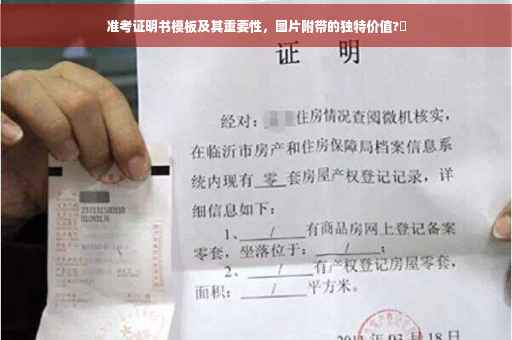 准考证明书模板及其重要性，图片附带的独特价值?
证 明
经对：住房情况查阅微机核实，
在临沂市房产和住房保障局档案信息系
统内现有 零 套房屋产权登记记录，详
细信息如下：
1、 / 有商品房网上登记备案
零套，坐落位于： / ；
2、 / 有产权登记房屋零套，
面积： / 平方米。
03 月 18 日